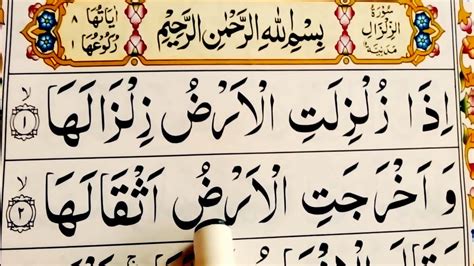 سُورَةُ الزِّلْزَالِ مَدَنِيَّةٌ
بِسْمِ اللهِ الرَّحْمٰنِ الرَّحِيْمِ
اٰيَاتُهَا ٨ رُكُوْعُهَا ١
اِذَا زُلْزِلَتِ الْاَرْضُ زِلْزَالَهَا ﴿١﴾ لا
وَ اَخْرَجَتِ الْاَرْضُ اَثْقَالَهَا ﴿٢﴾ لا